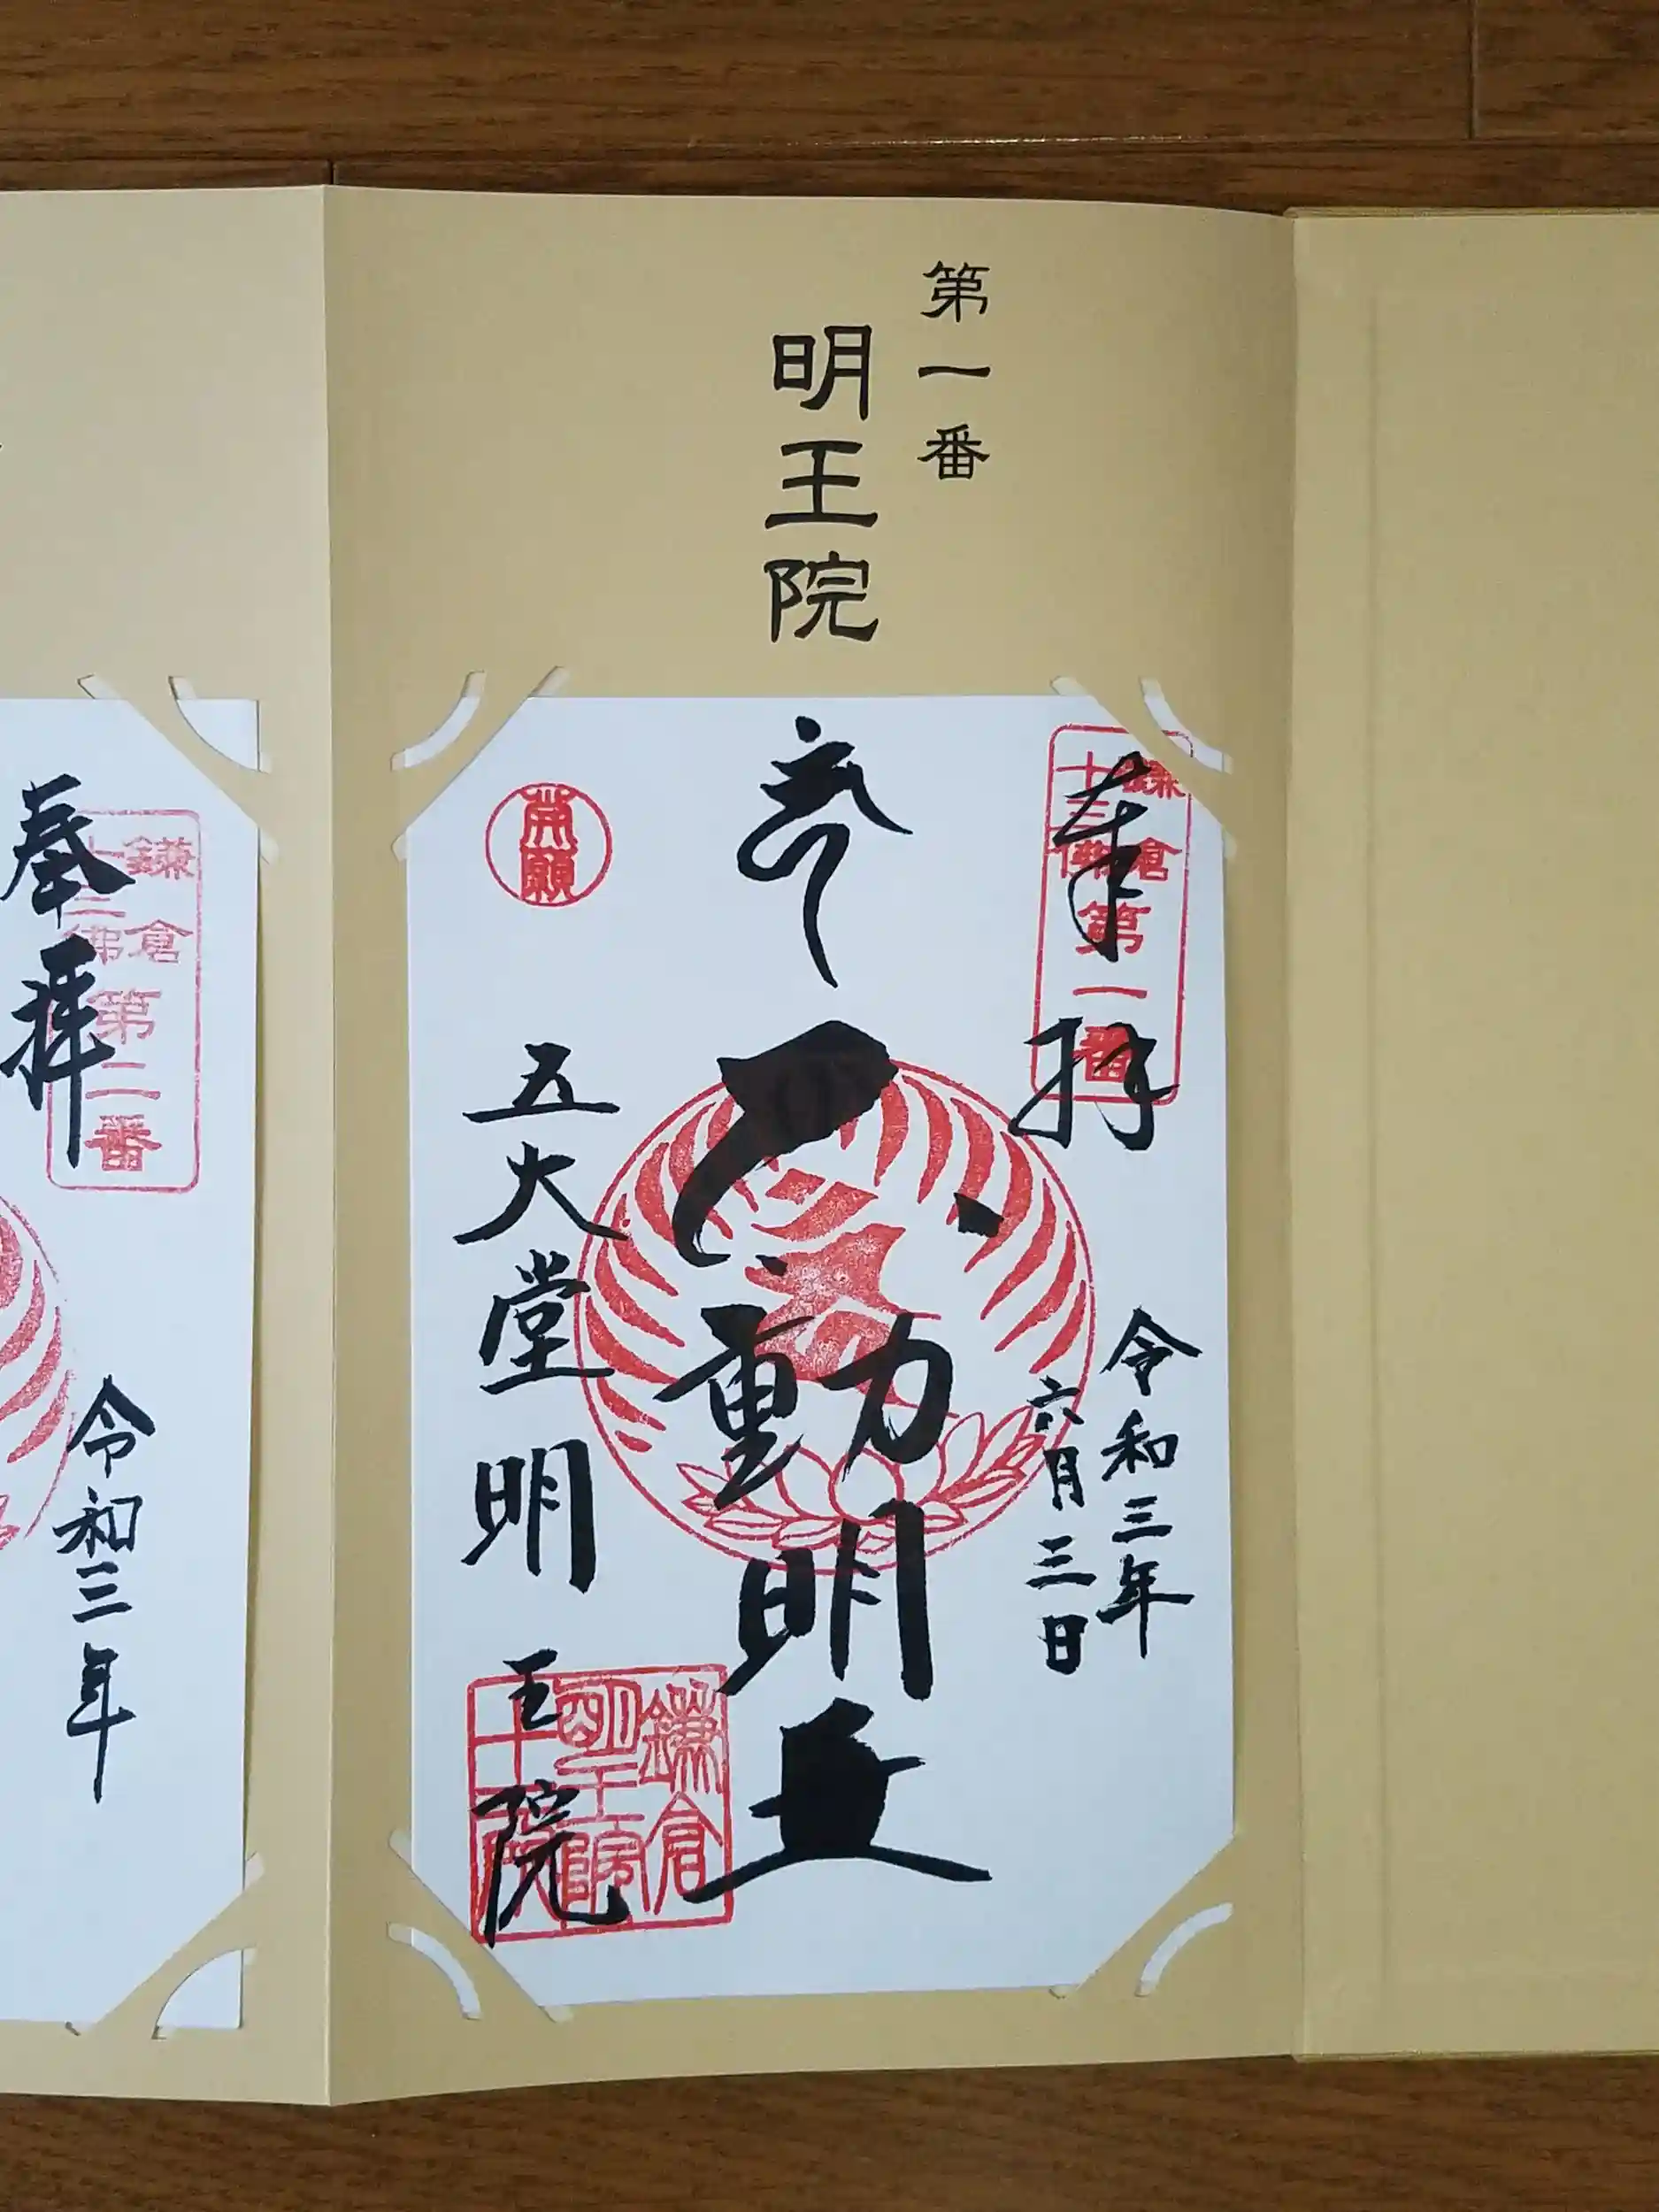 第一番
明王院
鎌倉
十三佛
第一番
奉拝
令和三年
六月三日
不動明王
五大堂明王院
鎌倉
明王院
奉拝
鎌倉
十三佛
第二番
令和三年